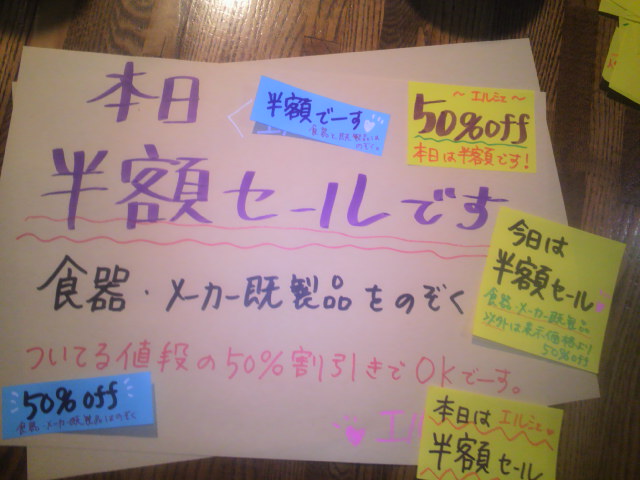 本日
半額セールです
食器・メーカー既製品をのぞく
ついてる値段の50%割引きでOKでーす。
エル
半額でーす
食器と既製品は
のぞく。
～エルミエ～
50%off
本日は半額です!
今日は
半額セール
食器・メーカー既製品
以外は表示価格より
50%off
50%off
食器・メーカー既製品はのぞく
本日はエルミエ
半額セール